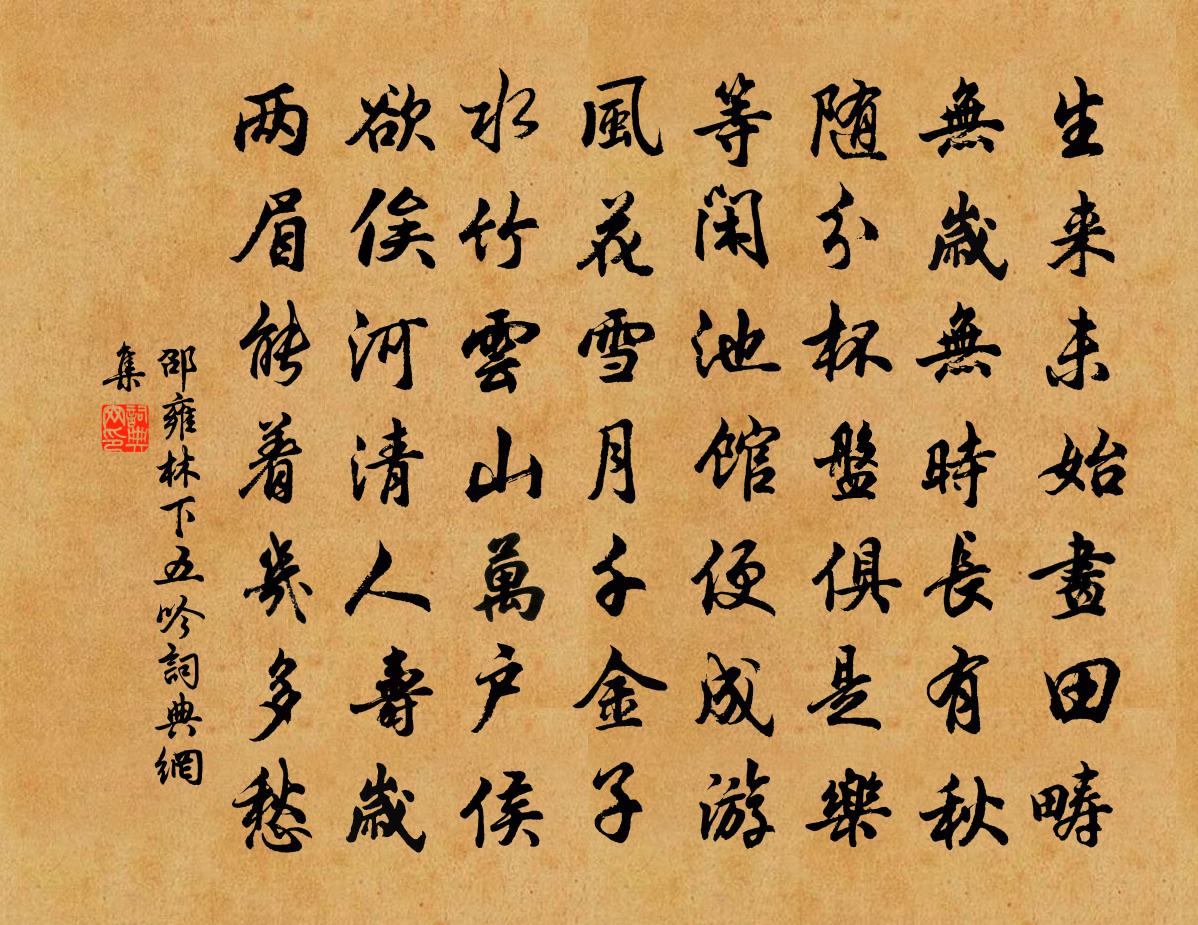 生来未始畫田疇
無歲無時長有秋
随分杯盤俱是樂
等閑池館便成游
風花雪月千金子
水竹雲山萬户侯
欲俟河清人壽歲
两眉能着幾多愁
邵雍林下五吟詞典網
集
詞典
网印